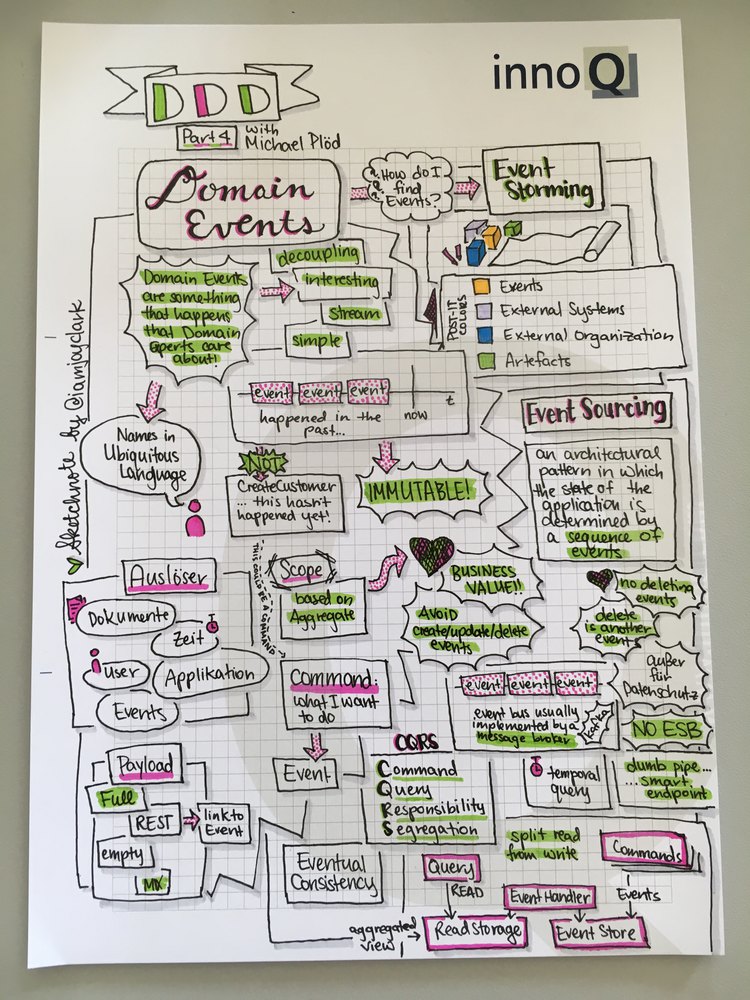 innoQ
DDD
Part 4
with
Michael Plöd
Domain
Events
How do I
find
Events?
Event
Storming
Domain Events
are something
that happens
that Domain
Experts care
about!
decoupling
interesting
stream
simple
POST-IT
COLORS
Events
External Systems
External Organization
Artefacts
event event event
now
t
happened in the
past...
Names in
Ubiquitous
Language
NOT
CreateCustomer
... this hasn't
happened yet!
IMMUTABLE!
Event Sourcing
an architectural
pattern in which
the state of the
application is
determined by
a sequence of
events
Sketchnote by @iamjayclark
Auslöser
Dokumente
Zeit
User
Applikation
Events
THIS COULD BE A COMMAND
Scope
based on
Aggregate
BUSINESS
VALUE!!
AVOID
create/update/delete
events
no deleting
events
delete
is another
event
außer
für
Datenschutz
Command:
what I want
to do
Event
event event event
event bus usually
implemented by a
message broker
Kafka
NO ESB
dumb pipe...
...smart
endpoint
temporal
query
Payload
Full
REST
link to
Event
empty
MIX
CQRS
Command
Query
Responsibility
Segregation
Eventual
Consistency
split read
from write
Commands
Query
READ
Event Handler
Events
aggregated
view
Read Storage
Event Store